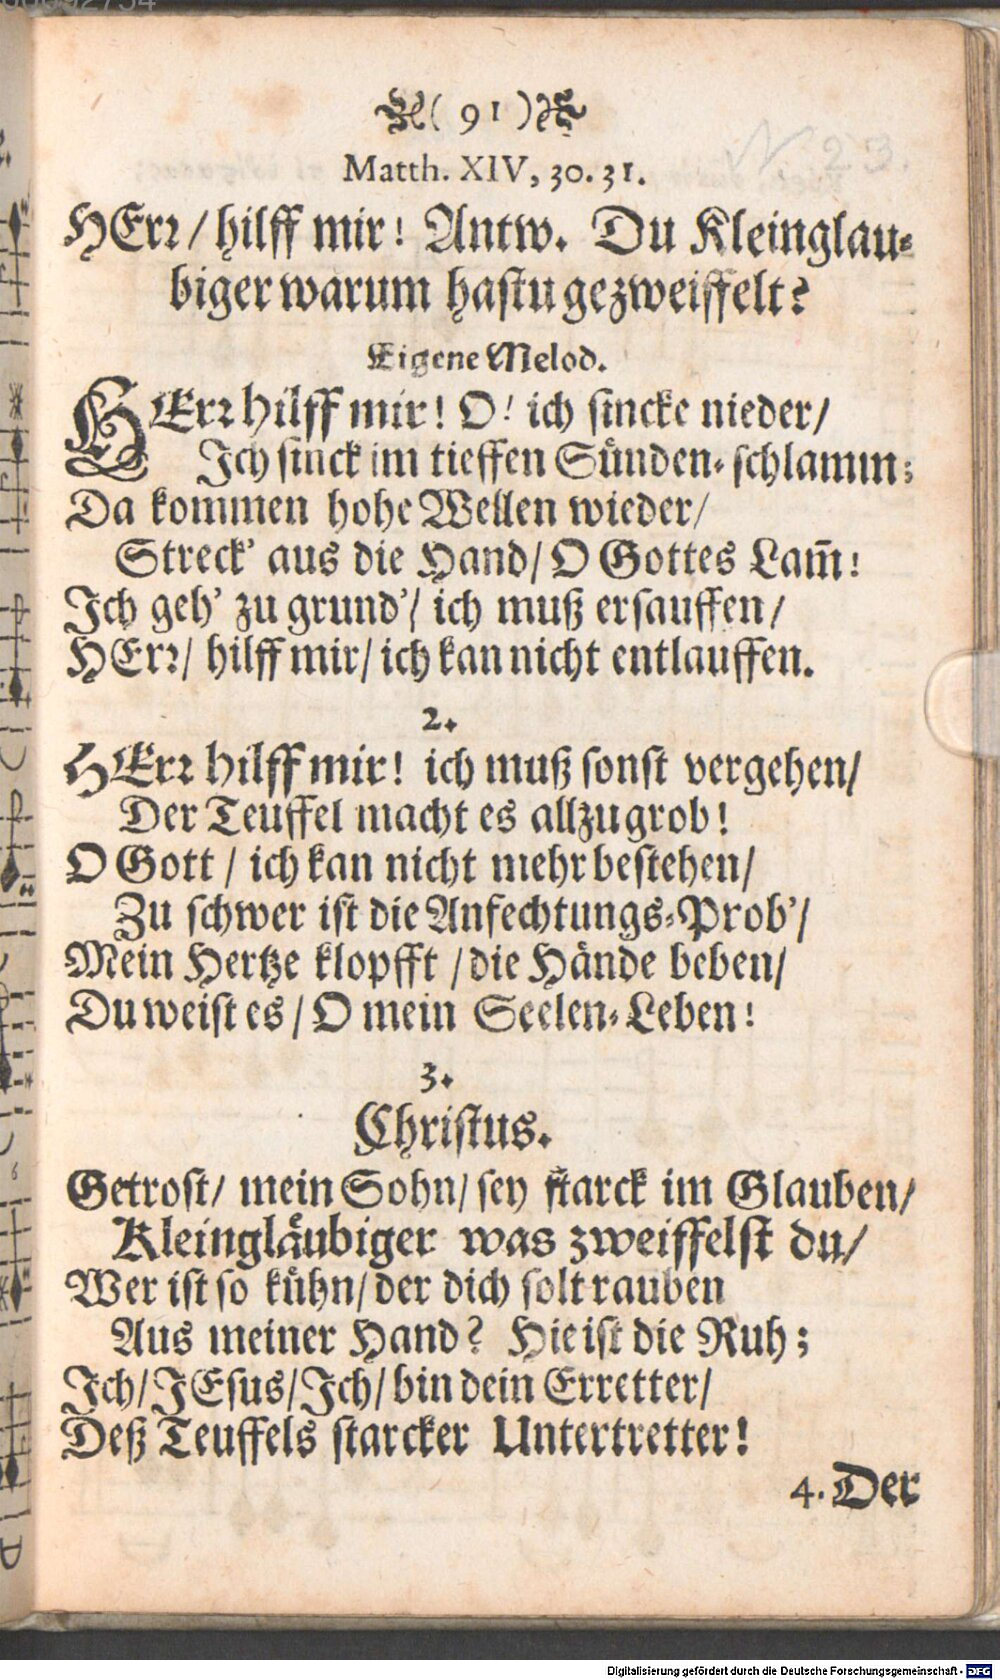 ( 91 )
Matth. XIV, 30. 31.
HErr / hilff mir! Antw. Du Kleinglau-
biger warum hastu gezweiffelt?
Eigene Melod.
HErr hilff mir! O! ich sincke nieder/
Ich sinck im tieffen Sünden-schlamm;
Da kommen hohe Wellen wieder/
Streck' aus die Hand/ O Gottes Lam̄!
Ich geh' zu grund'/ ich muß ersauffen/
HErr/ hilff mir/ ich kan nicht entlauffen.
2.
HErr hilff mir! ich muß sonst vergehen/
Der Teuffel macht es allzugrob!
O Gott / ich kan nicht mehr bestehen/
Zu schwer ist die Anfechtungs-Prob'/
Mein Hertze klopfft / die Hände beben/
Du weist es / O mein Seelen-Leben!
3.
Christus.
Getrost/ mein Sohn/ sey starck im Glauben/
Kleingläubiger was zweiffelst du/
Wer ist so kühn/ der dich solt rauben
Aus meiner Hand? Hie ist die Ruh;
Ich/ JEsus/ Ich/ bin dein Erretter/
Deß Teuffels starcker Untertretter!
4. Der
Digitalisierung gefördert durch die Deutsche Forschungsgemeinschaft - DFG